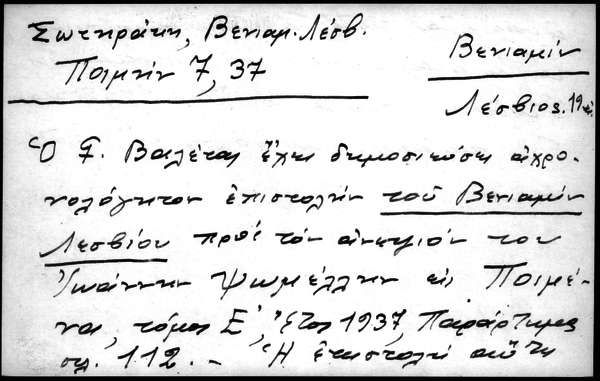 Σωτηράκη, Βενιαμ. Λέσβ.
Ποιμήν 7, 37
Βενιαμίν
Λέσβιος. 19 αἰ.
Ὁ Γ. Βαλέτας ἔχει δημοσιεύσει ἀχρο-
νολόγητον ἐπιστολήν τοῦ Βενιαμίν
Λεσβίου πρός τόν ἀνεψιόν του
Ἰωάννην Ψωμέλλην εἰς Ποιμέ-
να, τόμος Ε΄, Ἔτος 1937, Παράρτημα
σελ. 112. - Ἡ ἐπιστολή αὕτη